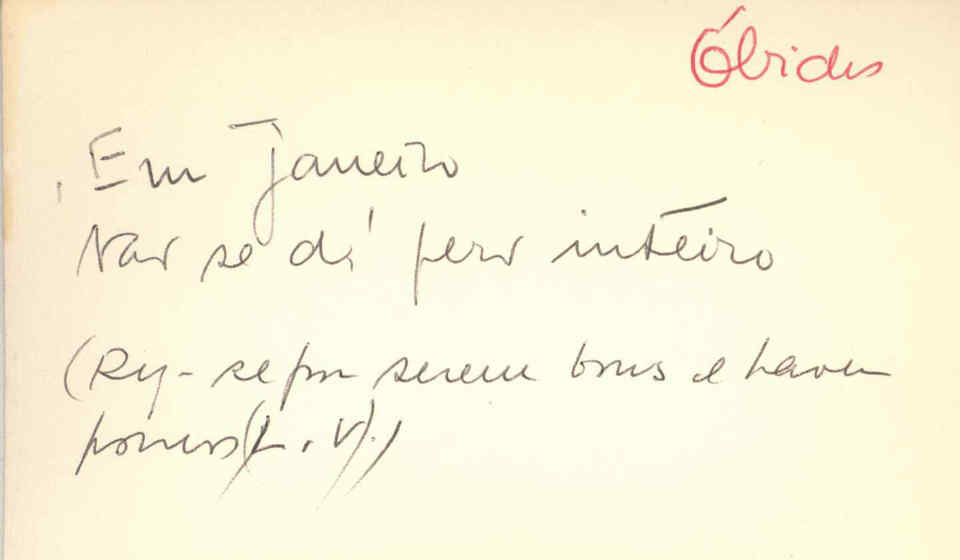 Óbidos
Em Janeiro
Não se dá pero inteiro
(Diz-se por serem bons e haver
poucos (L. V).)